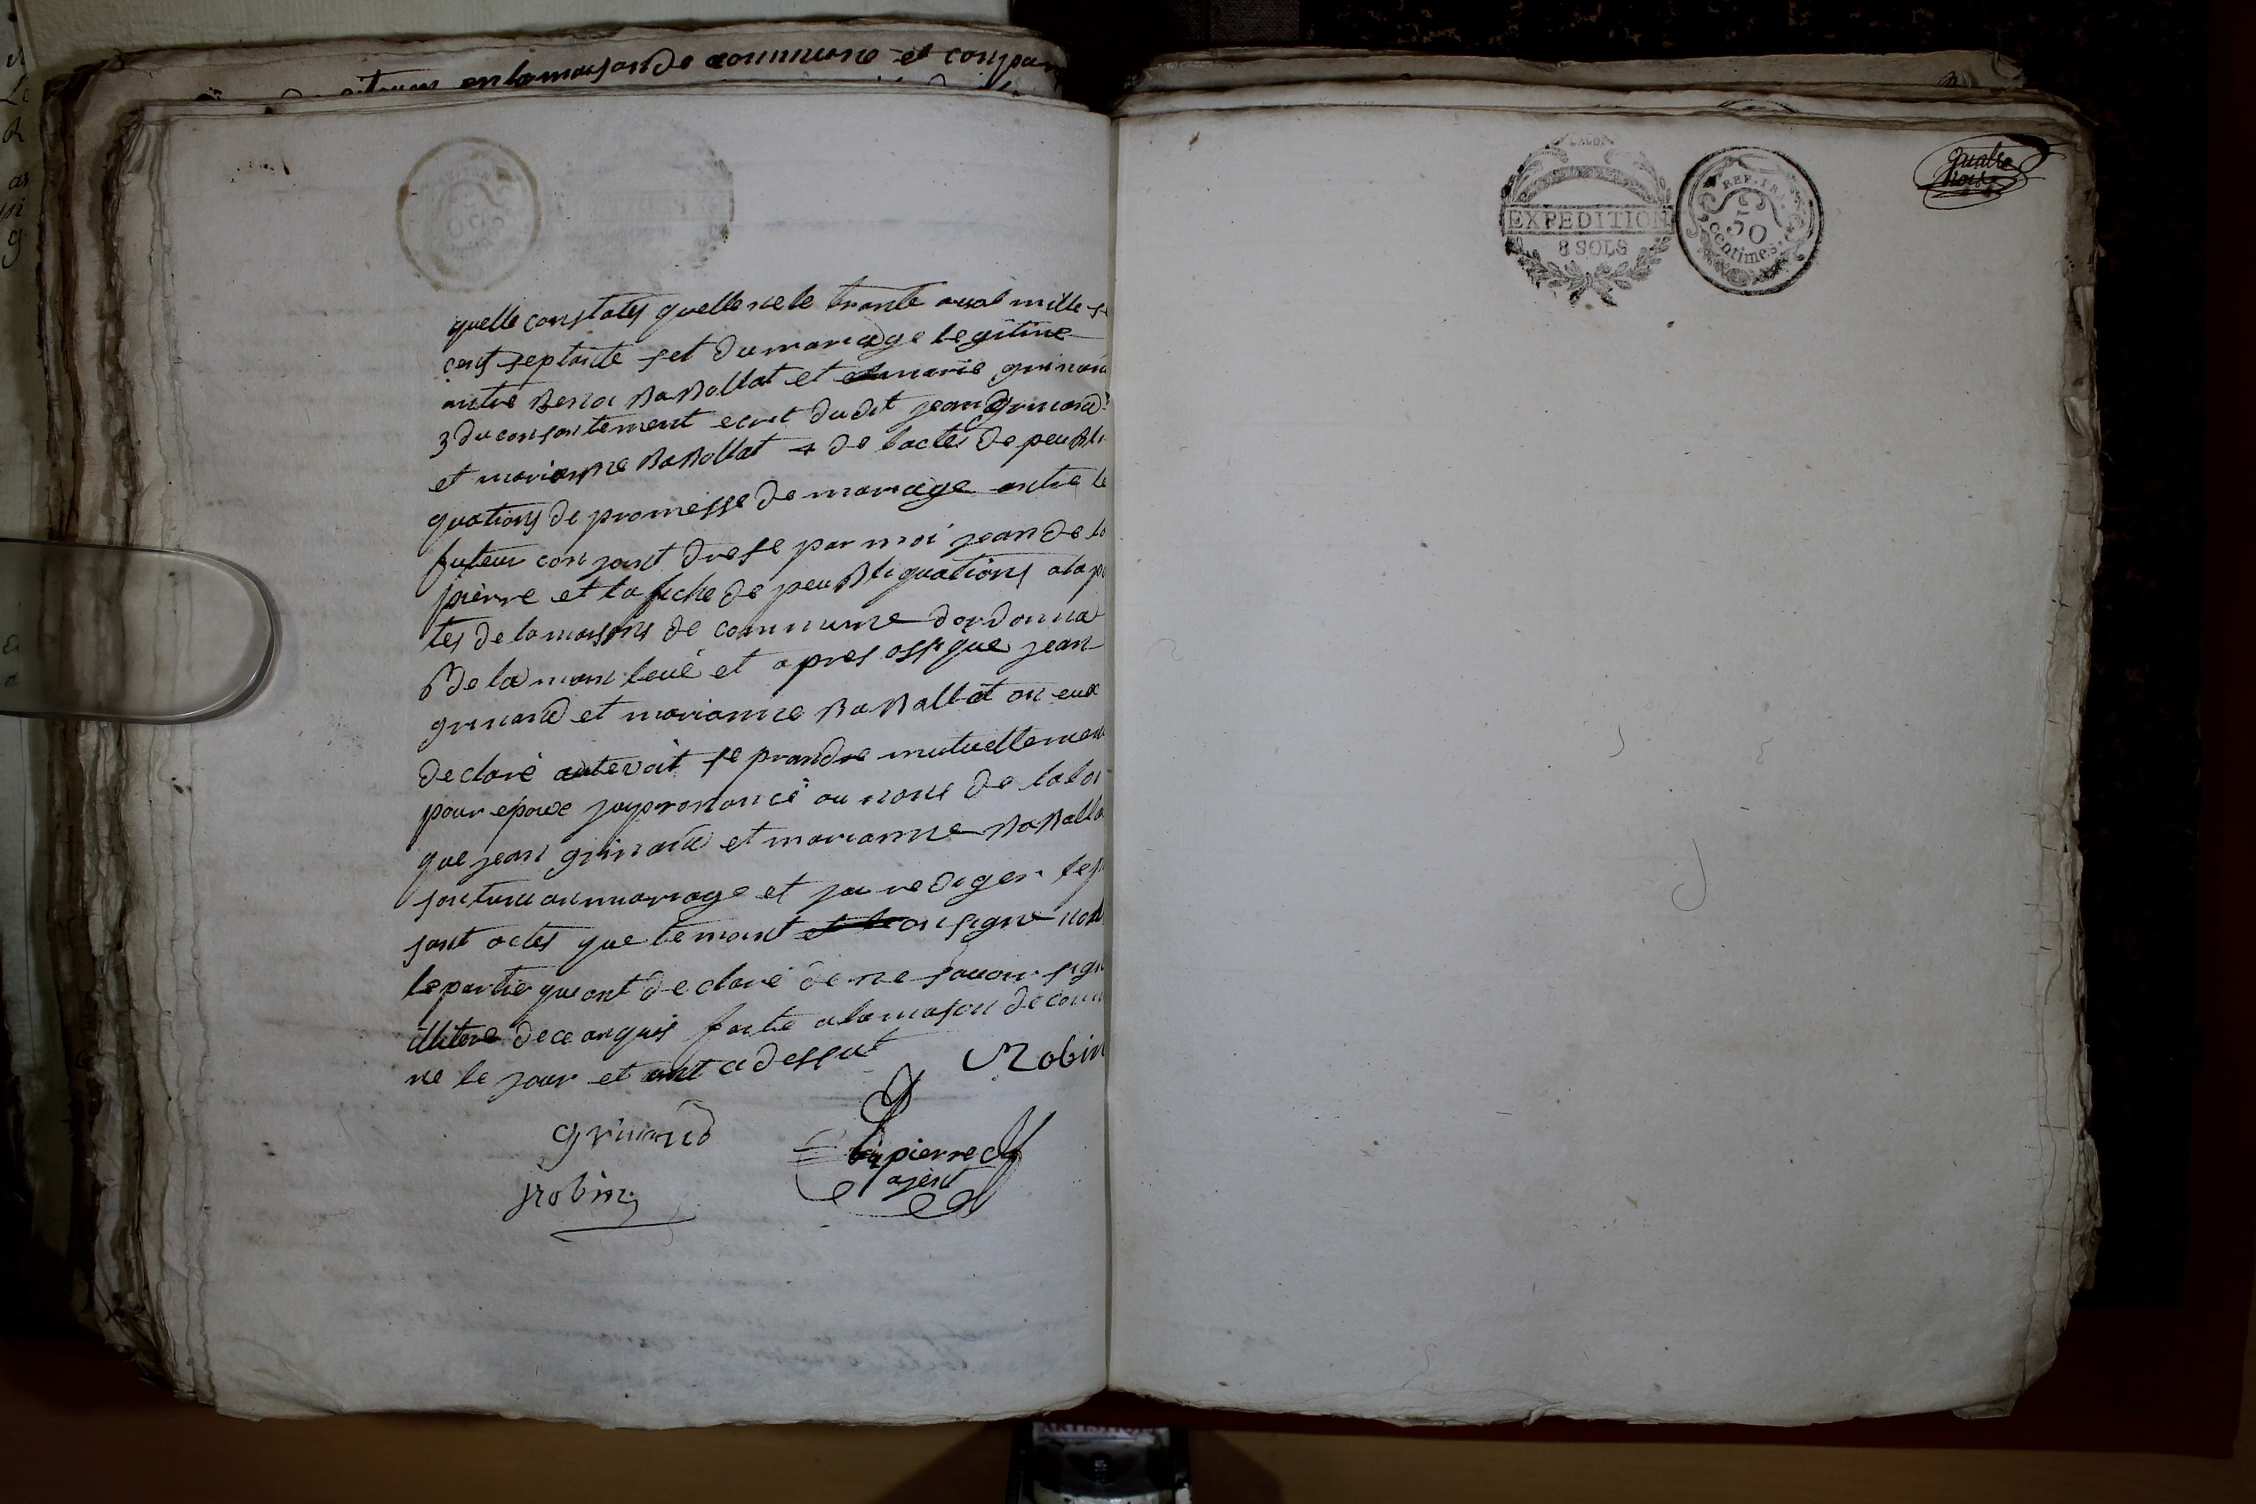 en lamaison de commune et compar
quelle constates quelle ne le trante aval mille se
cent septante set du mariage legitime
antre Benoi BaBollat et marie grinard
3 du consontement ecrit dudit jean grinard
et marianne BaBollat 4 de lactes de peubli
quations de promesse de mariage antre le
futeur conjoint drese par moi jean de la
pierre et lafiche de peubliquations ala po
tes de lamaisons de commune dordonna
de la man levé et apres ossi que jean
grinard et marianne BaBallat on eux
declaré autevoit se prandre mutuellement
pour epoux jay prononcé au nons de la loi
que jean grinard et marianne BaBalla
sont uni an mariage et jai rediger les
sant actes que temoint on signe non
le partie qui ont declaré de ne savoir sign
illitere de ce anquis faite ala mason de comu
ne le jour et ant ci dessut
Robin
grinard
lapierre
ajent
jrobin
EXPEDITION
8 SOLS
REP. FR.
50
centimes.
quatre